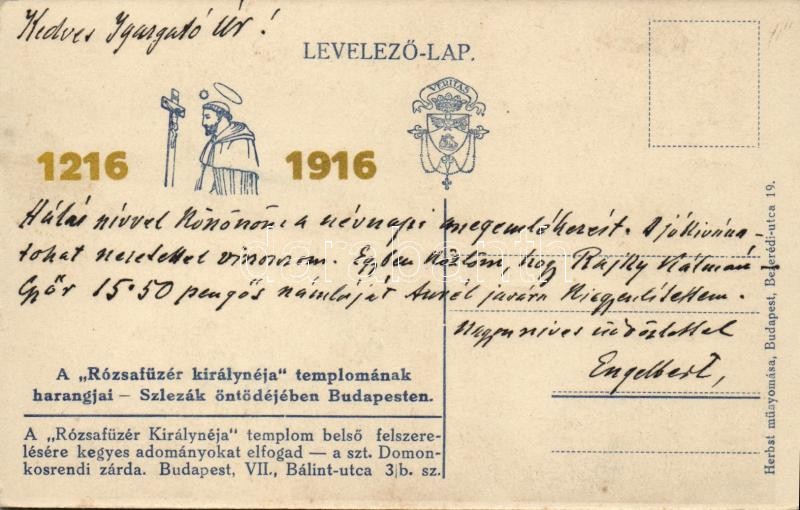 Kedves Igazgató Úr!
LEVELEZŐ-LAP.
VERITAS
1216 1916
Hálás szívvel köszönöm a névnapi megemlékezést. A jókívánsá
tokat szeretettel viszonzom. Egyben közlöm, hogy Rajky Kálmán
Győr 15·50 pengős számláját Aurél javára kiegyenlítettem.
Nagyon szíves üdvözlettel
Engelbert,
A „Rózsafüzér királynéja“ templomának
harangjai – Szlezák öntödéjében Budapesten.
A „Rózsafüzér Királynéja“ templom belső felszere-
lésére kegyes adományokat elfogad — a szt. Domon-
kosrendi zárda. Budapest, VII., Bálint-utca 3/b. sz.
Herbst műnyomása, Budapest, Bezerédi-utca 19.
darabanth